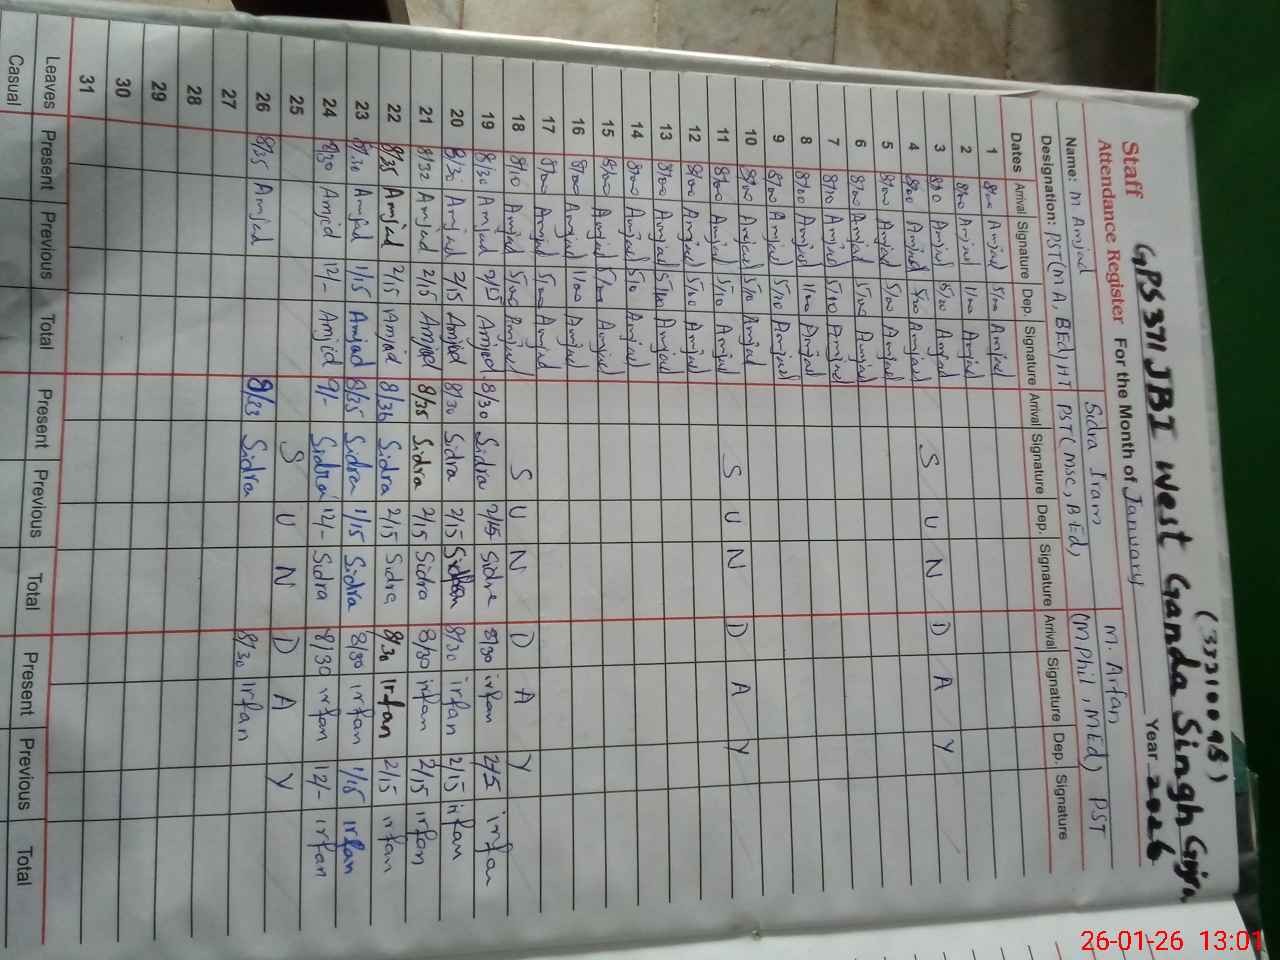 (33210098)
GPS 371 JBI West Ganda Singh Gujra
Staff
Attendance Register For the Month of January Year 2026
Name: M Amjad Sidra Iram M. Arfan
Designation: PST (M A, BEd) HT PST (Msc, B Ed) (M Phil, MEd) PST
Dates Arrival Signature Dep. Signature Arrival Signature Dep. Signature Arrival Signature Dep. Signature
1 8/00 Amjad 5/00 Amjad
2 8/00 Amjad 11/00 Amjad
3 8/10 Amjad 5/00 Amjad
4 8/00 Amjad 5/00 Amjad S U N D A Y
5 8/00 Amjad 5/00 Amjad
6 8/00 Amjad 5/00 Amjad
7 8/10 Amjad 5/10 Amjad
8 8/00 Amjad 11/00 Amjad
9 8/00 Amjad 5/10 Amjad
10 8/00 Amjad 5/10 Amjad
11 8/00 Amjad 5/10 Amjad S U N D A Y
12 8/00 Amjad 5/10 Amjad
13 8/00 Amjad Amjad
14 8/00 Amjad 5/10 Amjad
15 8/00 Amjad 5/00 Amjad
16 8/00 Amjad 11/00 Amjad
17 8/00 Amjad 5/00 Amjad
18 8/10 Amjad 5/00 Amjad S U N D A Y
19 8/30 Amjad 2/15 Amjad 8/30 Sidra 2/15 Sidra 8/30 irfan 2/15 irfan
20 8/30 Amjad 2/15 Amjad 8/30 Sidra 2/15 8/30 irfan 2/15 irfan
21 8/32 Amjad 2/15 Amjad 8/35 Sidra 2/15 Sidra 8/30 irfan 2/15 irfan
22 8/35 Amjad 2/15 Amjad 8/36 Sidra 2/15 Sidra 8/30 irfan 2/15 irfan
23 8/30 Amjad 1/15 Amjad 8/35 Sidra 1/15 Sidra 8/30 irfan 1/15 irfan
24 8/30 Amjad 12/- Amjad 9/- Sidra 12/- Sidra 8/30 irfan 12/- irfan
25 S U N D A Y
26 8/35 Amjad 8/33 Sidra 8/30 irfan
27
28
29
30
31
Leaves Present Previous Total Present Previous Total Present Previous Total
Casual
26-01-26 13:01